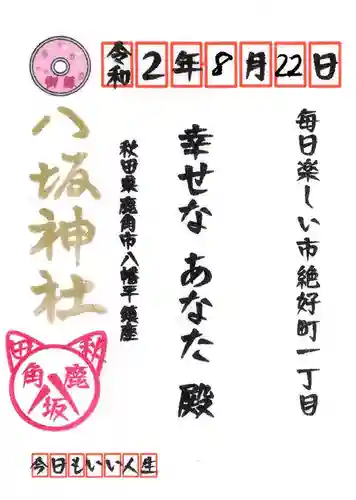 令和2年8月22日
毎日楽しい市絶好町一丁目
幸せな あなた 殿
秋田県鹿角市八幡平鎮座
八坂神社
秋田
鹿角
八坂
今日もいい人生